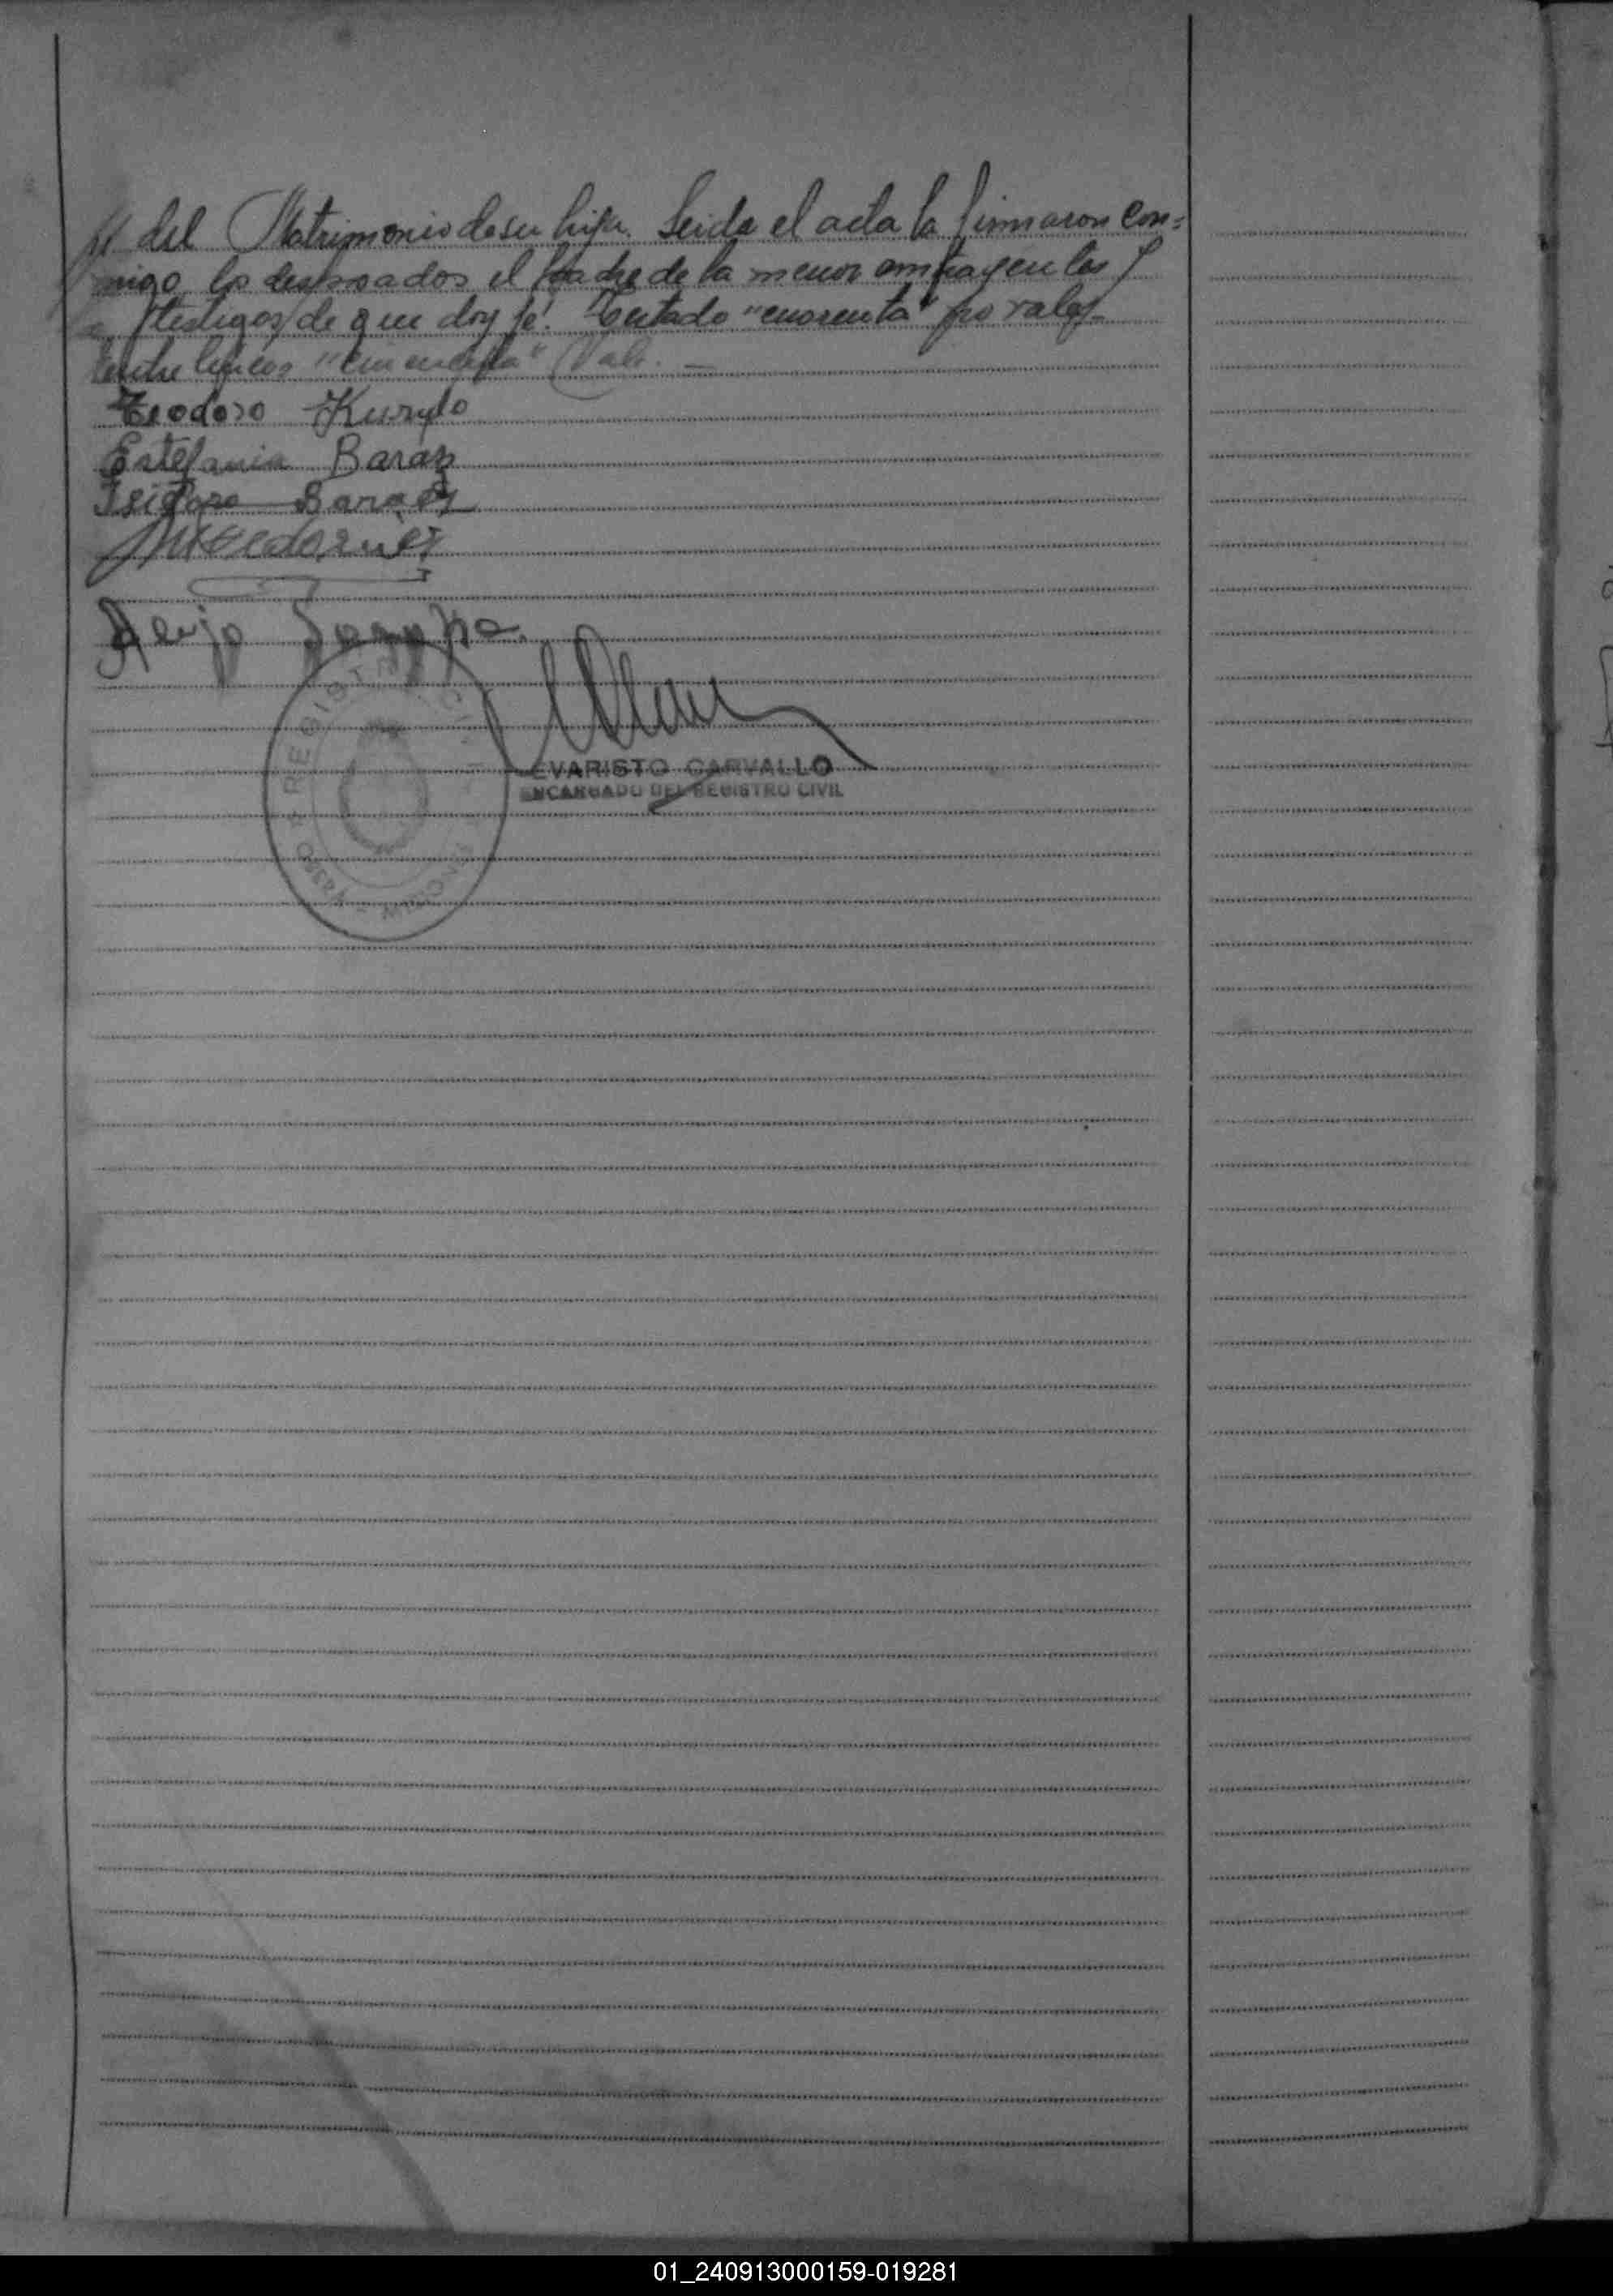 del Matrimonio de su hija. Leida el acta la firmaron con=
migo, los desposados el Padre de la menor contrayente los
testigos de que doy fé. Testado "cuarenta" no vale.
Entre lineas "cincuenta" Vale. —
Teodoro Kurylo
Estefania Baraz
Isidoro
REGISTRO CIVIL
OBERA - MISIONES
EVARISTO CARVALLO
ENCARGADO DEL REGISTRO CIVIL
01_240913000159-019281